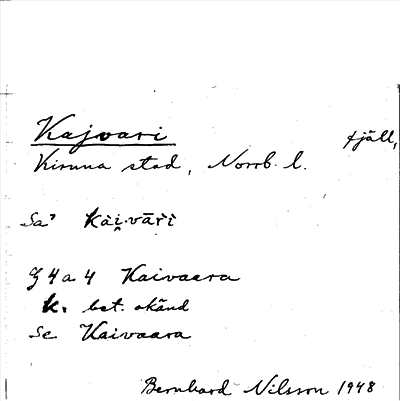 Kajvari fjäll,
Kiruna stad, Norrb. l.
Sa' kài̯·vāri
G 4 a 4 Kaivaara
k. bet. okänd
Se Kaivaara
Bernhard Nilsson 1948